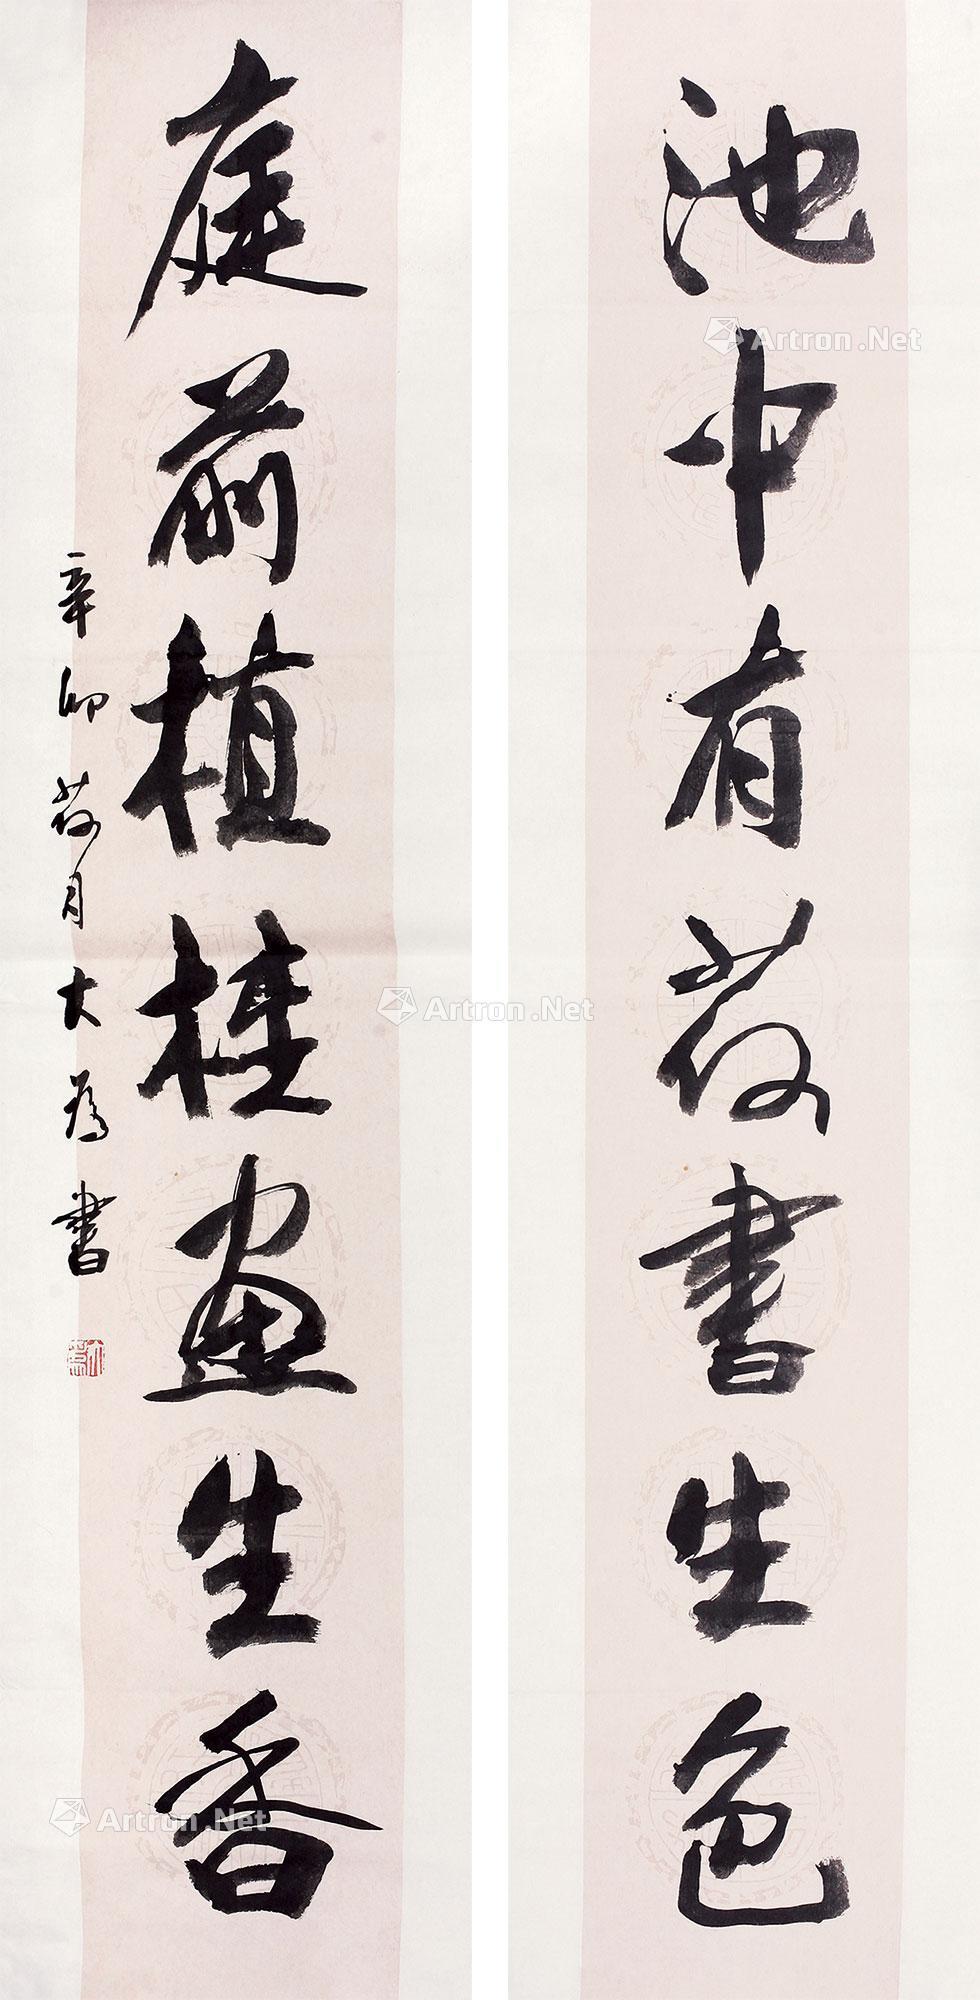 池中有荷書生色
庭前植桂畫生香
辛卯荷月大為書
Artron.Net
Artron.Net
Artron.Net